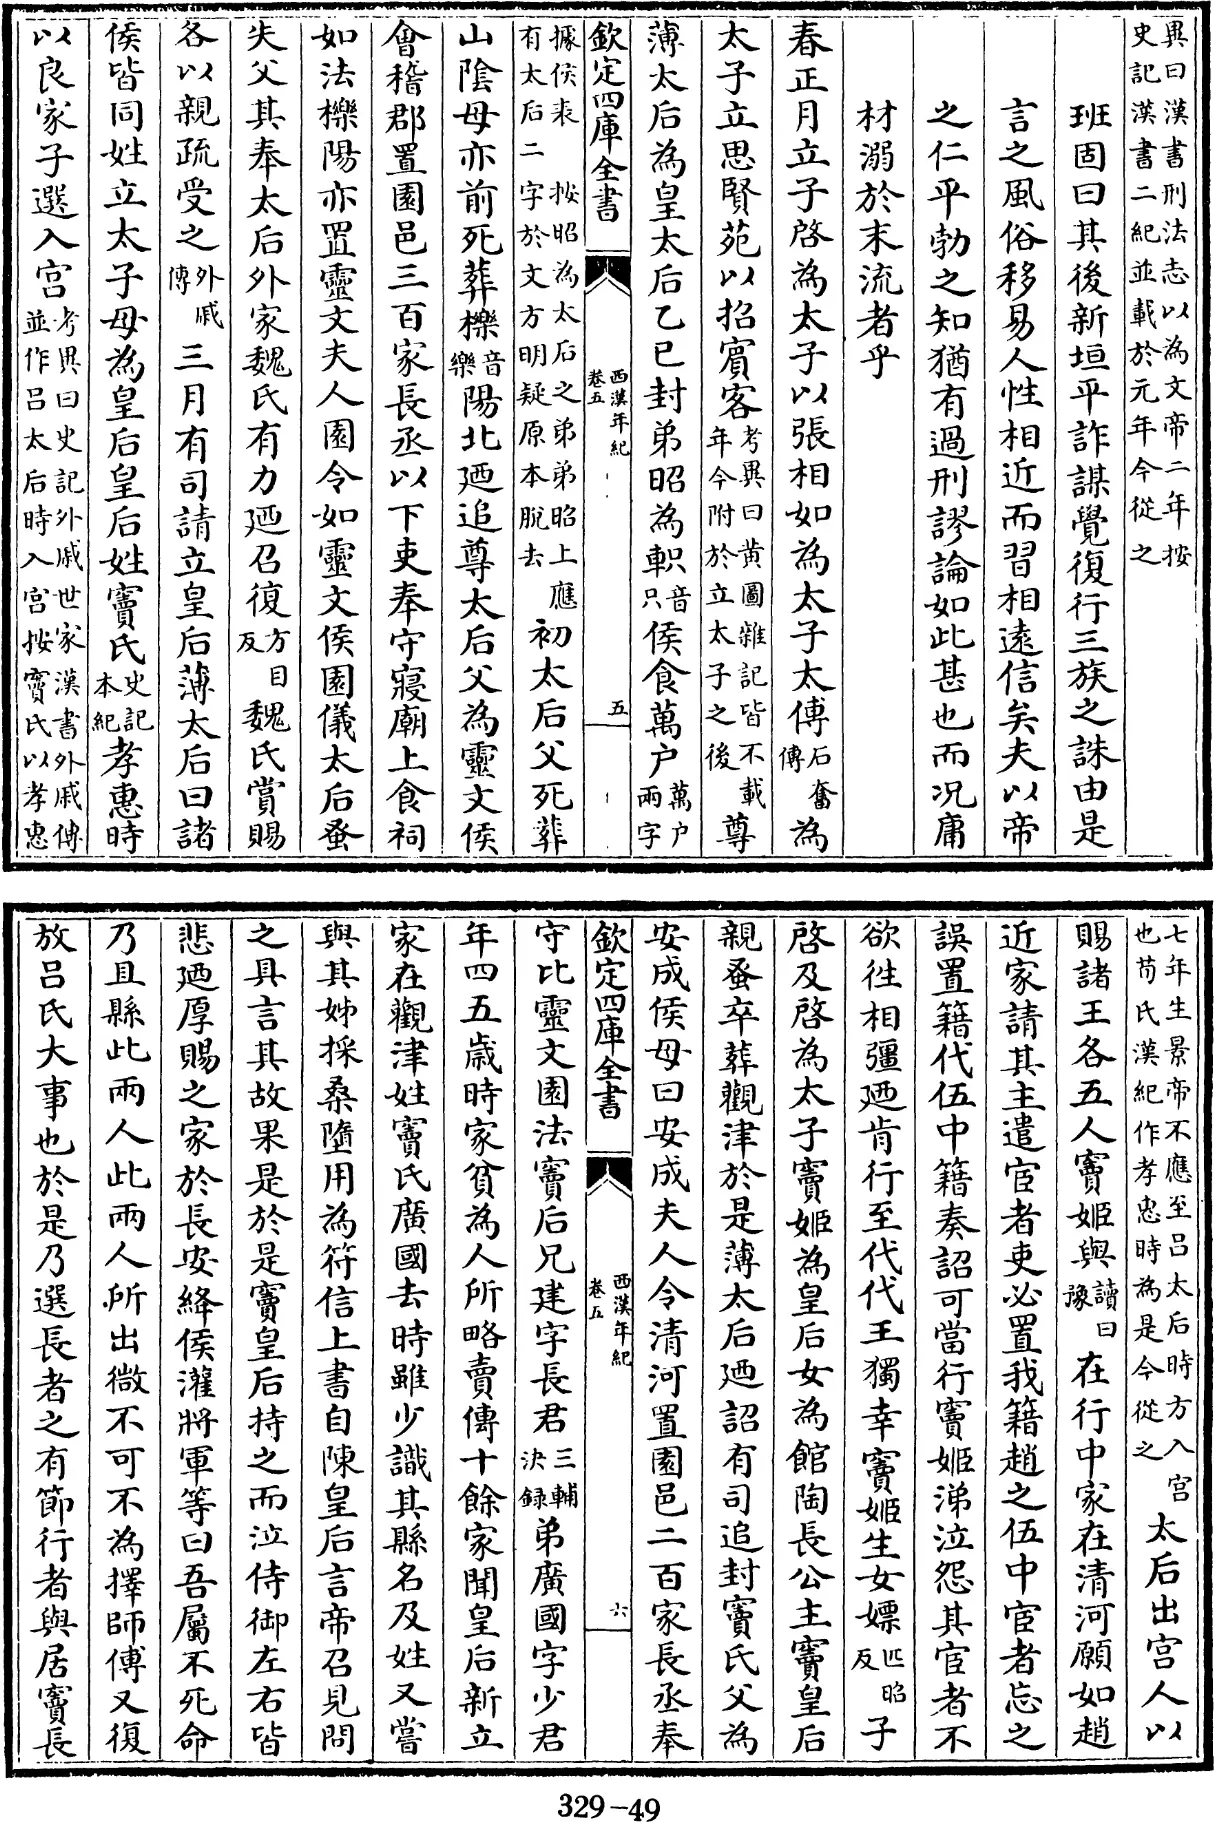 異曰漢書刑法志以為文帝二年按
史記漢書二紀並載於元年今從之
班固曰其後新垣平詐謀覺復行三族之誅由是
言之風俗移易人性相近而習相遠信矣夫以帝
之仁平勃之知猶有過刑謬論如此甚也而況庸
材溺於末流者乎
春正月立子啓為太子以張相如為太子太傅石奮傳為
太子立思賢苑以招賓客考異曰黃圖雜記皆不載年今附於立太子之後尊
薄太后為皇太后乙巳封弟昭為軹音只侯食萬户萬户兩字
欽定四庫全書
西漢年紀
卷五
五
據侯表 按昭為太后之弟弟昭上應
有太后二字於文方明疑原本脫去
初太后父死葬
山陰母亦前死葬櫟音樂陽北廼追尊太后父為靈文侯
會稽郡置園邑三百家長丞以下吏奉守寢廟上食祠
如法櫟陽亦置靈文夫人園令如靈文侯園儀太后蚤
失父其奉太后外家魏氏有力廼召復方目反魏氏賞賜
各以親疏受之外戚傳三月有司請立皇后薄太后曰諸
侯皆同姓立太子母為皇后皇后姓竇氏史記本紀孝惠時
以良家子選入宫考異曰史記外戚世家漢書外戚傳並作吕太后時入宫按竇氏以孝惠
七年生景帝不應至吕太后時方入宮
也荀氏漢紀作孝惠時為是今從之
太后出宫人以
賜諸王各五人竇姬與讀曰豫在行中家在清河願如趙
近家請其主遣宦者吏必置我籍趙之伍中宦者忘之
誤置籍代伍中籍奏詔可當行竇姬涕泣怨其宦者不
欲徃相彊廼肯行至代代王獨幸竇姬生女嫖匹昭反子
啓及啓為太子竇姬為皇后女為館陶長公主竇皇后
親蚤卒葬觀津於是薄太后廼詔有司追封竇氏父為
安成侯母曰安成夫人令清河置園邑二百家長丞奉
欽定四庫全書
西漢年紀
卷五
六
守比靈文園法竇后兄建字長君三輔決録弟廣國字少君
年四五歳時家貧為人所略賣傳十餘家聞皇后新立
家在觀津姓竇氏廣國去時雖少識其縣名及姓又嘗
與其姊採桑墮用為符信上書自陳皇后言帝召見問
之具言其故果是於是竇皇后持之而泣侍御左右皆
悲廼厚賜之家於長安絳侯灌將軍等曰吾屬不死命
乃且縣此兩人此兩人所出微不可不為擇師傅又復
放吕氏大事也於是乃選長者之有節行者與居竇長
329-49